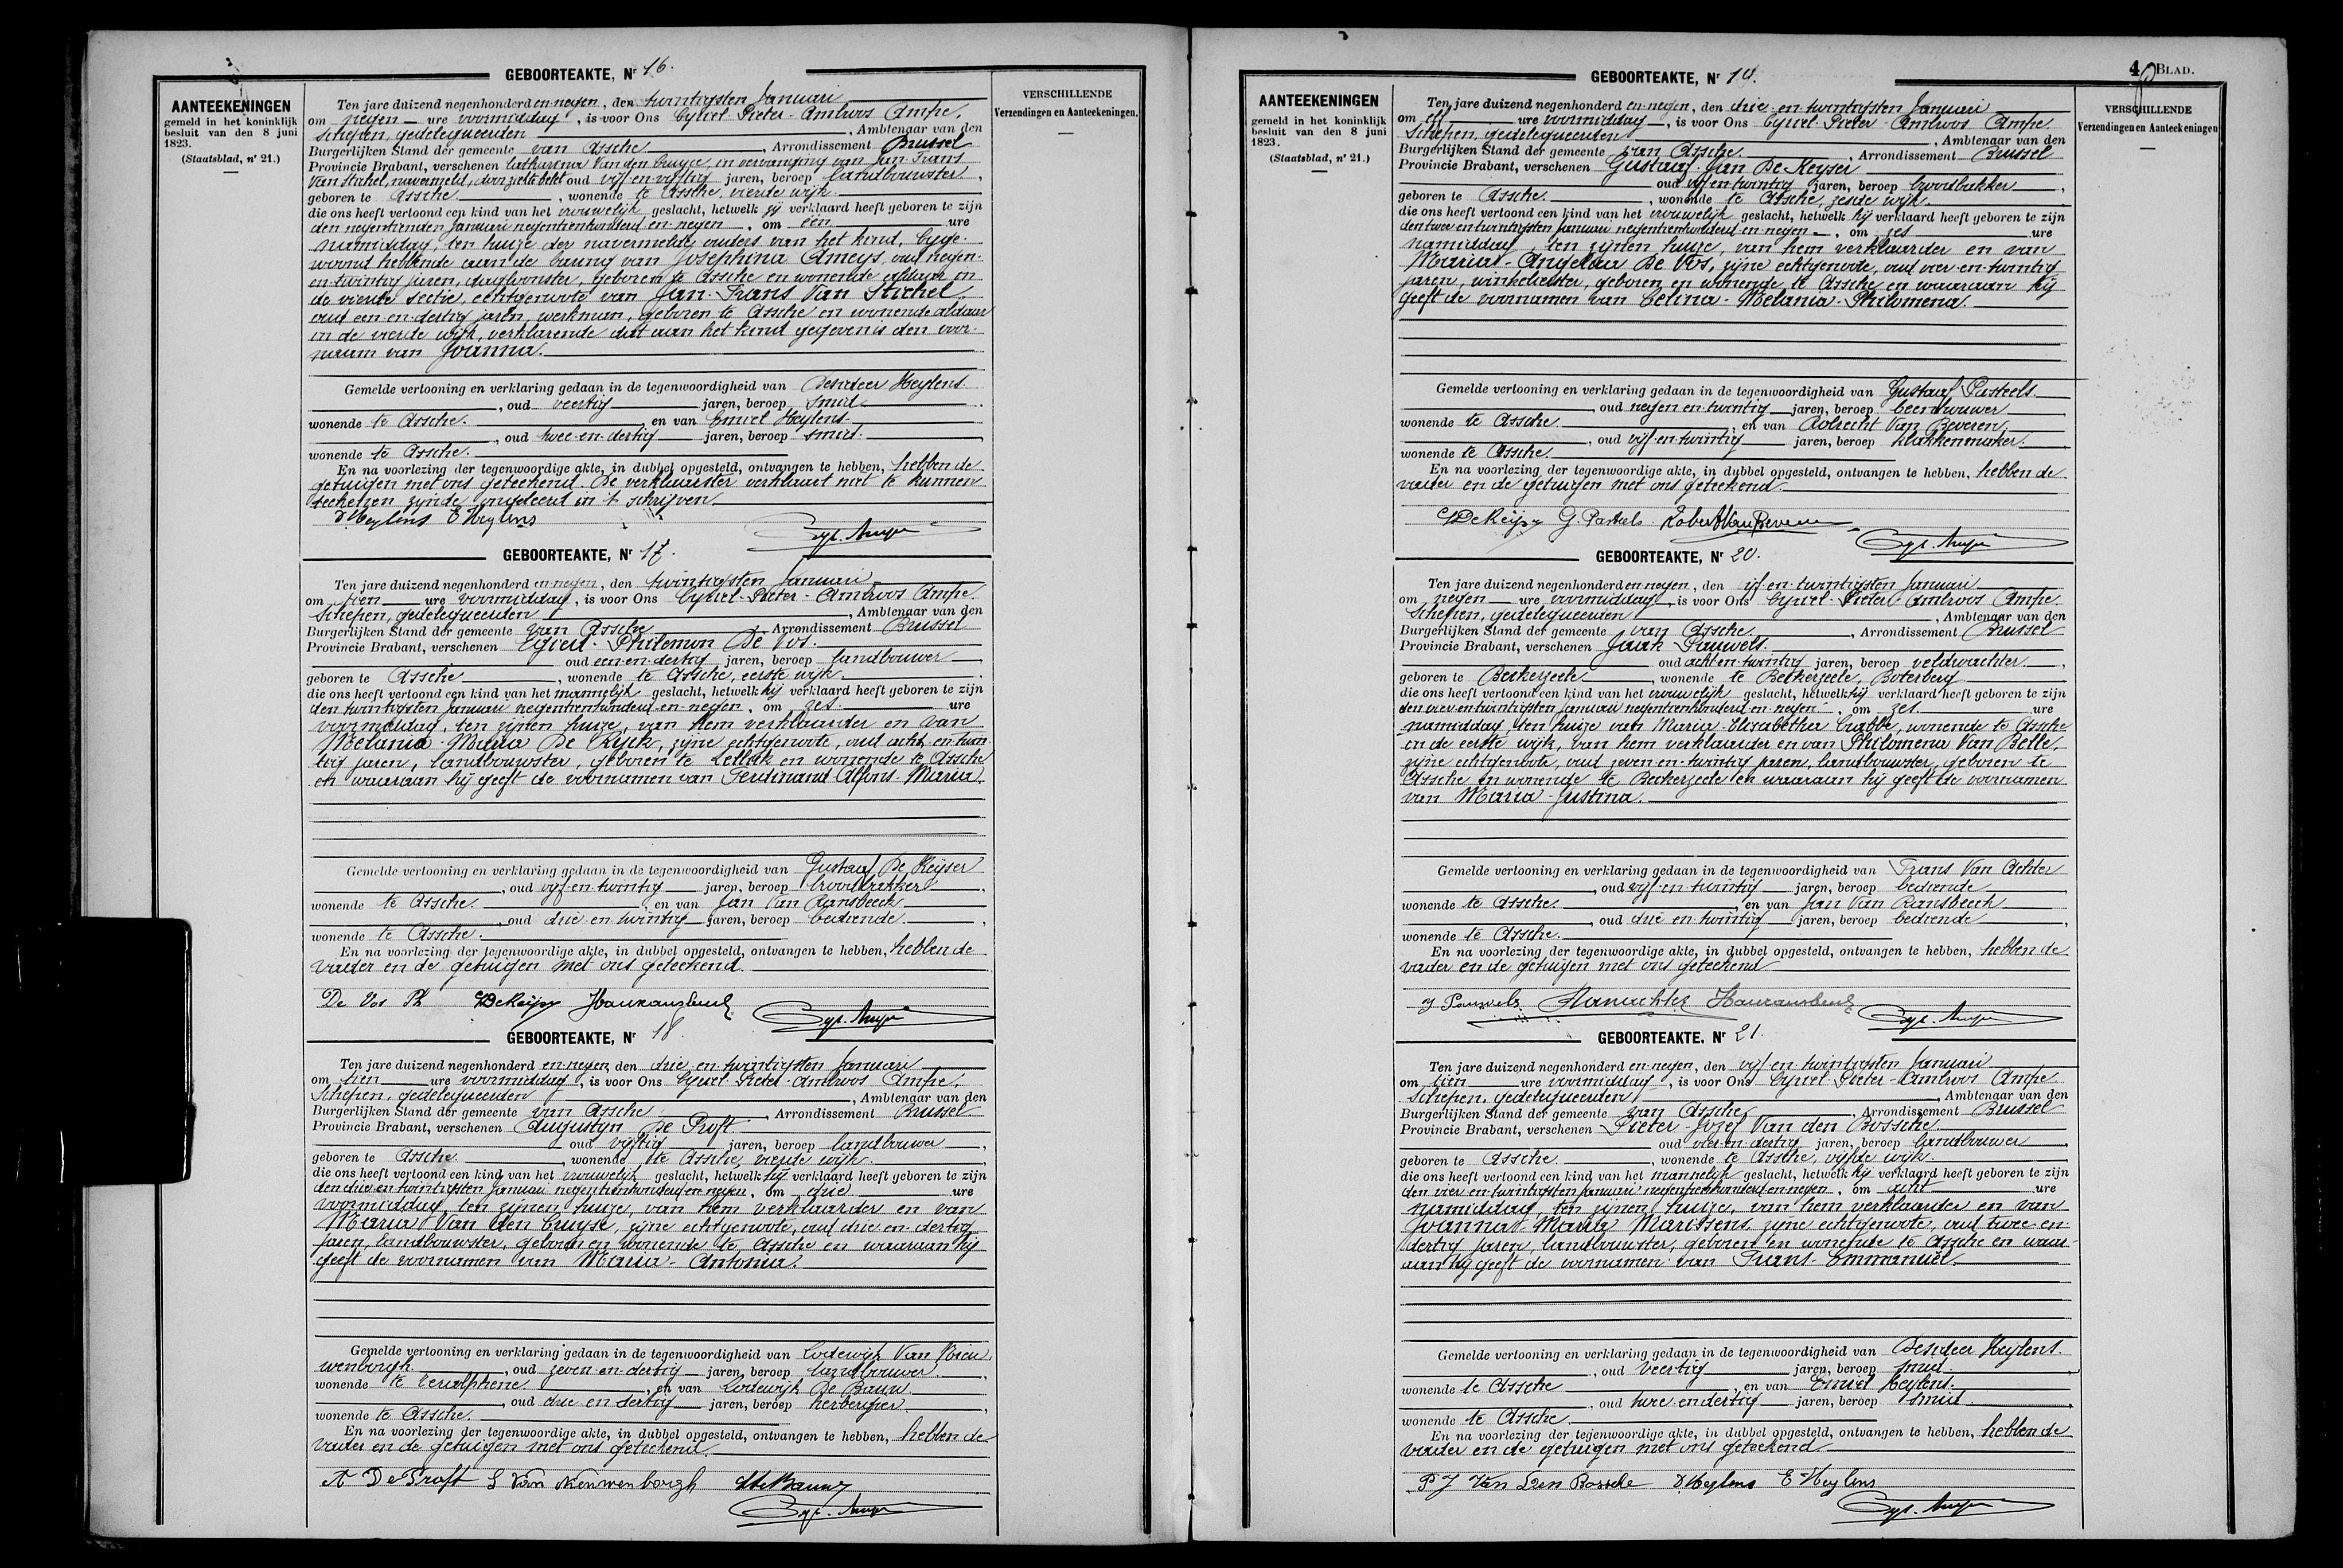 GEBOORTEAKTE, Nr 16.
AANTEEKENINGEN
gemeld in het koninklijk
besluit van den 8 juni
1823.
(Staatsblad, nr 21.)
VERSCHILLENDE
Verzendingen en Aanteekeningen.
Ten jare duizend negenhonderd en negen, den twintigsten Januari
om negen ure voormiddag, is voor Ons Cyriel-Pieter-Ambroos Ampe,
Schepen, gedelegueerden, Ambtenaar van den
Burgerlijken Stand der gemeente van Assche, Arrondissement Brussel
Provincie Brabant, verschenen Catharina Van den Cruyce, in vervanging van Jan Frans
Van Stichel, navermeld, door ziekte belet oud vijf-en-vijftig jaren, beroep landbouwster,
geboren te Assche, wonende te Assche, vierde wijk
die ons heeft vertoond een kind van het vrouwelijk geslacht, hetwelk zij verklaard heeft geboren te zijn
den negentienden Januari negentienhonderd en negen, om een ure
namiddag, ten huize der navermelde ouders van het kind, bijge-
woond hebbende aan de baring van Josephina Ameys, oud negen-
en-twintig jaren, dagloonster, geboren te Assche en wonende aldaar in
de vierde sectie, echtgenoote van Jan-Frans Van Stichel,
oud een-en-dertig jaren, werkman, geboren te Assche en wonende aldaar
in de vierde wijk, verklarende dat aan het kind gegeven is den voor-
naam van Joanna.
Gemelde vertooning en verklaring gedaan in de tegenwoordigheid van Desideer Heylens
, oud veertig jaren, beroep smid
wonende te Assche. en van Emiel Heylens
, oud twee-en-dertig jaren, beroep smid.
wonende te Assche.
En na voorlezing der tegenwoordige akte, in dubbel opgesteld, ontvangen te hebben, hebben de
getuigen met ons geteekend. De verklaarster verklaart niet te kunnen
teekenen zijnde ongeleerd in 't schrijven.
D Heylens E Heylens Cyr. Ampe
GEBOORTEAKTE, Nr 17.
Ten jare duizend negenhonderd en negen, den twintigsten Januari
om tien ure voormiddag, is voor Ons Cyriel-Pieter-Ambroos Ampe
Schepen, gedelegueerden, Ambtenaar van den
Burgerlijken Stand der gemeente van Assche Arrondissement Brussel
Provincie Brabant, verschenen Philemon De Vos.
oud een-en-dertig jaren, beroep landbouwer
geboren te Assche, wonende te Assche, eerste wijk.
die ons heeft vertoond een kind van het mannelijk geslacht, hetwelk hij verklaard heeft geboren te zijn
den twintigsten Januari negentienhonderd en negen, om zes. ure
voormiddag, ten zijnen huize, van hem verklaarder en van
Melania-Maria De Ryck, zijne echtgenoote, oud acht-en-twin-
tig jaren, landbouwster, geboren te Zellick en wonende te Assche
en waaraan hij geeft de voornamen van Ferdinand Alfons-Maria.
Gemelde vertooning en verklaring gedaan in de tegenwoordigheid van Gustaaf De Keyser
, oud vijf-en-twintig jaren, beroep broodbakker
wonende te Assche. en van Jan Van Ransbeeck
, oud drie en twintig jaren, beroep bediende
wonende te Assche.
En na voorlezing der tegenwoordige akte, in dubbel opgesteld, ontvangen te hebben, hebben de
vader en de getuigen met ons geteekend.
De Vos Ph GDeKeyzer JVanransbeeck Cyr. Ampe
GEBOORTEAKTE, Nr 18.
Ten jare duizend negenhonderd en negen, den drie en twintigsten Januari
om tien ure voormiddag, is voor Ons Cyriel-Pieter-Ambroos Ampe,
Schepen, gedelegueerden, Ambtenaar van den
Burgerlijken Stand der gemeente van Assche, Arrondissement Brussel
Provincie Brabant, verschenen Augustyn De Proft.
oud vijftig jaren, beroep landbouwer
geboren te Assche, wonende te Assche, vierde wijk.
die ons heeft vertoond een kind van het vrouwelijk geslacht, hetwelk hij verklaard heeft geboren te zijn
den drie en twintigsten Januari negentienhonderd en negen, om drie ure
voormiddag, ten zijnen huize, van hem verklaarder en van
Maria Van den Cruyce, zijne echtgenoote, oud drie-en-dertig
jaren, landbouwster, geboren en wonende te Assche en waaraan hij
geeft de voornamen van Maria-Antonia.
Gemelde vertooning en verklaring gedaan in de tegenwoordigheid van Lodewijk Van Nieu
wenborgh, oud zeven-en-dertig jaren, beroep landbouwer.
wonende te, en van Lodewijk De Bauw.
, oud drie en dertig jaren, beroep herbergier
wonende te Assche.
En na voorlezing der tegenwoordige akte, in dubbel opgesteld, ontvangen te hebben, hebben de
vader en de getuigen met ons geteekend.
A De Proft L Van Nieuwenborgh LDeBauw
Cyr. Ampe
4e BLAD.
GEBOORTEAKTE, Nr 19.
AANTEEKENINGEN
gemeld in het koninklijk
besluit van den 8 juni
1823.
(Staatsblad, nr 21.)
VERSCHILLENDE
Verzendingen en Aanteekeningen
Ten jare duizend negenhonderd en negen, den drie-en-twintigsten Januari
om elf ure voormiddag, is voor Ons Cyriel-Pieter-Ambroos Ampe
Schepen, gedelegueerden, Ambtenaar van den
Burgerlijken Stand der gemeente van Assche, Arrondissement Brussel
Provincie Brabant, verschenen Gustaaf-Jan De Keyser
oud vijf en twintig jaren, beroep broodbakker
geboren te Assche, wonende te Assche, zesde wijk.
die ons heeft vertoond een kind van het vrouwelijk geslacht, hetwelk hij verklaard heeft geboren te zijn
den twee en twintigsten Januari negentienhonderd en negen, om zes ure
namiddag, ten zijnen huize, van hem verklaarder en van
Maria-Angelina De Vos, zijne echtgenoote, oud vier-en-twintig
jaren, winkelierster, geboren en wonende te Assche en waaraan hij
geeft de voornamen van Celina-Melania-Philomena.
Gemelde vertooning en verklaring gedaan in de tegenwoordigheid van Gustaaf Pasteels
oud negen en twintig jaren, beroep beenhouwer
wonende te Assche, en van Robrecht Van Beveren
, oud vijf-en-twintig jaren, beroep klakkenmaker.
wonende te Assche.
En na voorlezing der tegenwoordige akte, in dubbel opgesteld, ontvangen te hebben, hebben de
vader en de getuigen met ons geteekend.
GDeKeyzer G. Pasteels Robert VanBeveren
Cyr. Ampe
GEBOORTEAKTE, Nr 20.
Ten jare duizend negenhonderd en negen, den vijf-en-twintigsten Januari
om negen ure voormiddag, is voor Ons Cyriel-Pieter-Ambroos Ampe
Schepen, gedelegueerden, Ambtenaar van den
Burgerlijken Stand der gemeente van Assche, Arrondissement Brussel
Provincie Brabant, verschenen Jaak Pauwels.
oud acht en twintig jaren, beroep veldwachter
geboren te Bekkerzeele, wonende te Bekkerzeele, Boterberg
die ons heeft vertoond een kind van het vrouwelijk geslacht, hetwelk hij verklaard heeft geboren te zijn
den vier en twintigsten Januari negentienhonderd en negen, om zes ure
namiddag, ten huize van Maria-Elisabetha Crabbé, wonende te Assche
in de eerste wijk, van hem verklaarder en van Philomena Van Belle,
zijne echtgenoote, oud zeven en twintig jaren, landbouwster, geboren te
Assche en wonende te Beckerzeele en waaraan hij geeft de voornamen
van Maria-Justina.
Gemelde vertooning en verklaring gedaan in de tegenwoordigheid van Frans Van Achter
, oud vijf-en-twintig jaren, beroep bediende
wonende te Assche, en van Jan Van Ransbeeck
, oud drie en twintig jaren, beroep bediende
wonende te Assche.
En na voorlezing der tegenwoordige akte, in dubbel opgesteld, ontvangen te hebben, hebben de
vader en de getuigen met ons geteekend
J Pauwels FVanachter JVanransbeeck
Cyr. Ampe
GEBOORTEAKTE, Nr 21.
Ten jare duizend negenhonderd en negen, den vijf en twintigsten Januari
om tien ure voormiddag, is voor Ons Cyriel Pieter-Ambroos Ampe
Schepen, gedelegueerden, Ambtenaar van den
Burgerlijken Stand der gemeente van Assche, Arrondissement Brussel
Provincie Brabant, verschenen Pieter-Jozef Van den Bossche
oud vier-en-dertig jaren, beroep landbouwer
geboren te Assche, wonende te Assche, vijfde wijk.
die ons heeft vertoond een kind van het mannelijk geslacht, hetwelk hij verklaard heeft geboren te zijn
den vier en twintigsten Januari negentienhonderd en negen, om acht ure
namiddag, ten zijnen huize, van hem verklaarder en van
Joanna-Maria Marissens, zijne echtgenoote, oud twee-en-
dertig jaren, landbouwster, geboren en wonende te Assche en waar-
aan hij geeft de voornamen van Frans-Emmanuel.
Gemelde vertooning en verklaring gedaan in de tegenwoordigheid van Desideer Heylens.
, oud veertig jaren, beroep smid
wonende te Assche, en van Emiel Heylens.
, oud twee en dertig jaren, beroep smid
wonende te Assche.
En na voorlezing der tegenwoordige akte, in dubbel opgesteld, ontvangen te hebben, hebben de
vader en de getuigen met ons geteekend
P J Van Den Bossche D Heylens E Heylens
Cyr. Ampe